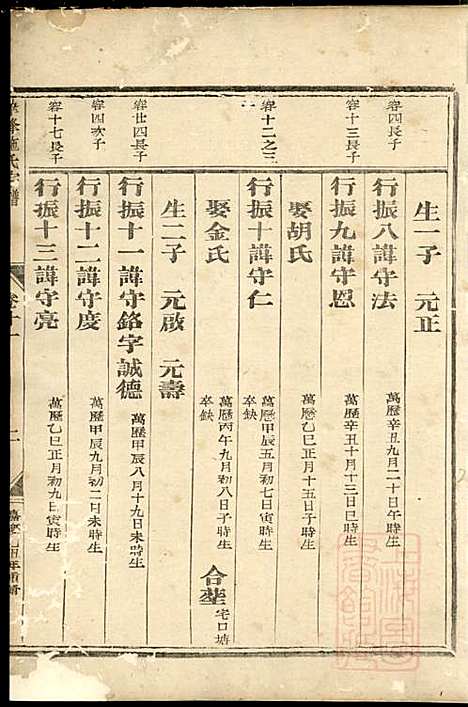 生一子　元正
容四長子
行振八諱守法　萬歷辛丑九月二十日午時生
容十三長子
行振九諱守恩　萬歷辛丑十月十三日巳時生
娶胡氏　萬歷乙巳正月十五日子時生
容十二之三
行振十諱守仁　萬歷甲辰五月初七日寅時生　卒缺
娶金氏　萬歷丙午九月初八日子時生　卒缺　合塟宅口塘
生二子　元啟　元壽
容廿四長子
行振十一諱守銘字誠德　萬歷甲辰八月十九日未時生
容四次子
行振十二諱守度　萬歷甲辰九月初二日未時生
容十七長子
行振十三諱守亮　萬歷乙巳正月初九日寅時生
峯施氏宗譜　卷十一　二　嘉慶